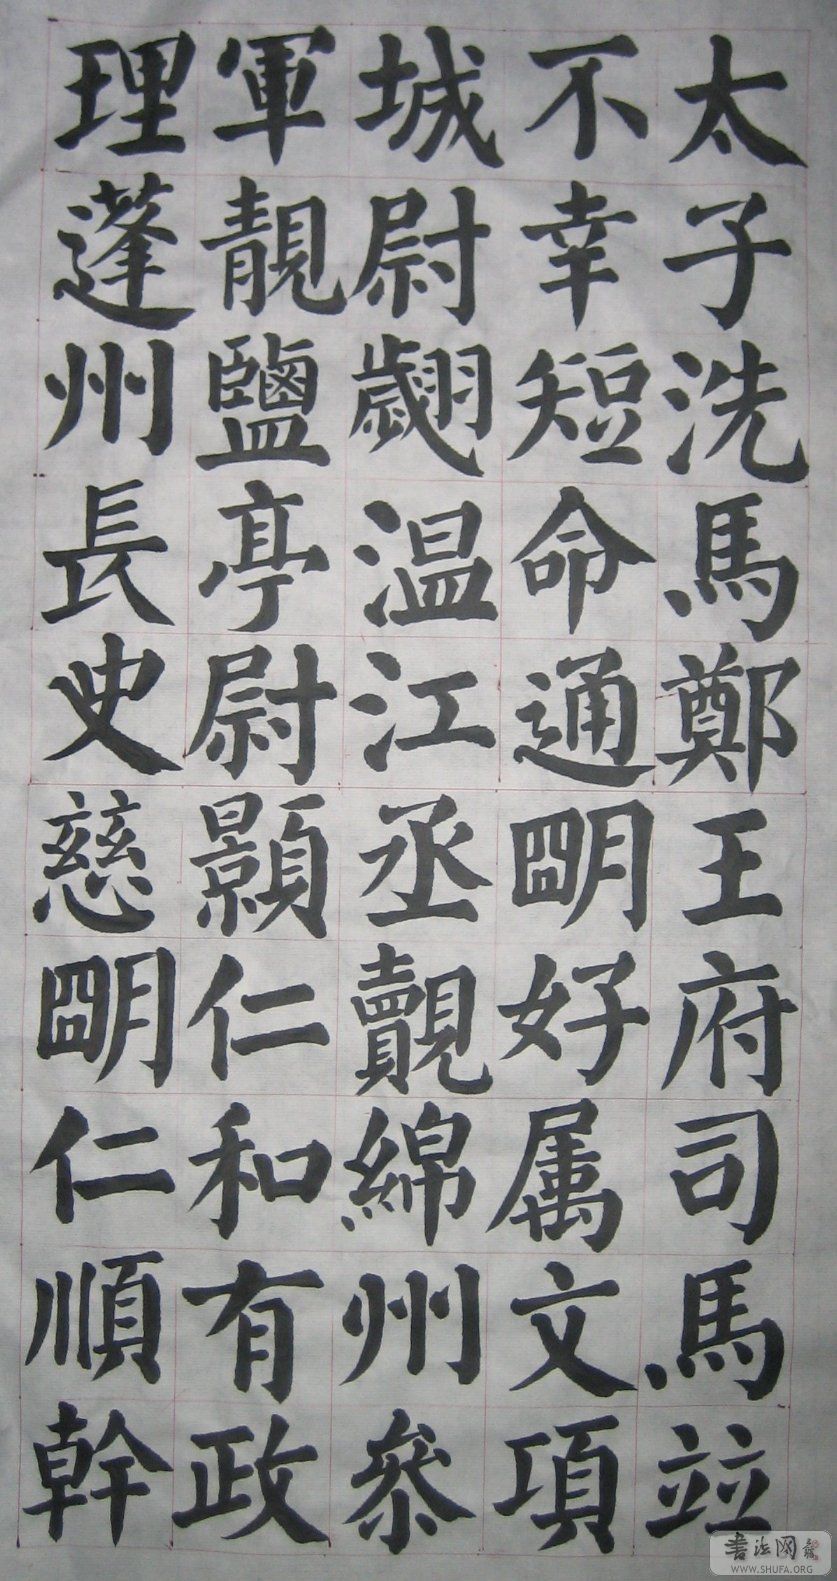 太子洗馬鄭王府司馬並
不幸短命通明好属文項
城尉翽温江丞覿綿州叅
軍靚鹽亭尉顥仁和有政
理蓬州長史慈明仁順幹
書法网
WWW.SHUFA.ORG